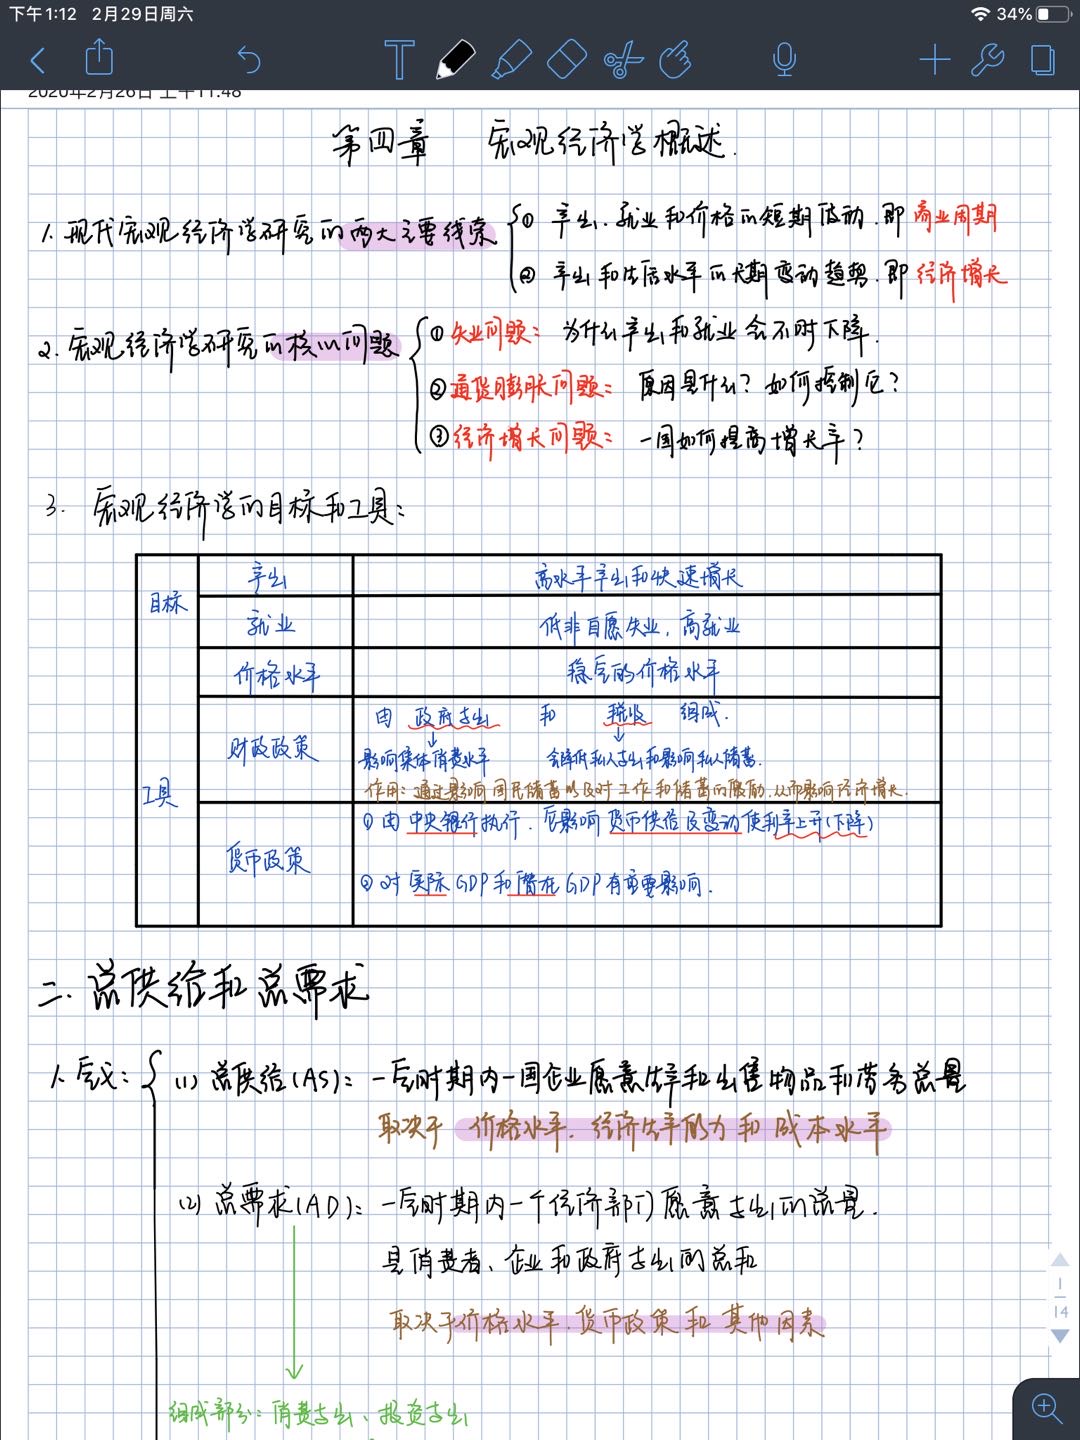 下午1:12 2月29日周六
34%
2020年2月26日 上午11:48
第四章 宏观经济学概述.
1. 现代宏观经济学研究的两大主要线索
① 产出、就业和价格的短期波动.即 商业周期
② 产出和生活水平的长期变动趋势.即 经济增长
2. 宏观经济学研究的核心问题
① 失业问题: 为什么产出和就业会不时下降.
② 通货膨胀问题: 原因是什么? 如何控制它?
③ 经济增长问题: 一国如何提高增长率?
3. 宏观经济学的目标和工具:
目标
产出 高水平产出和快速增长
就业 低非自愿失业,高就业
价格水平 稳定的价格水平
工具
财政政策
由 政府支出 和 税收 组成.
影响集体消费水平 会降低私人支出和影响私人储蓄.
作用: 通过影响国民储蓄以及对工作和储蓄的激励,从而影响经济增长.
货币政策
① 由中央银行执行.它影响货币供给及变动使利率上升(下降)
② 对实际GDP和潜在GDP有重要影响.
二. 总供给和总需求
1. 定义:
(1) 总供给(AS): 一定时期内一国企业愿意生产和出售物品和劳务总量
取决于 价格水平.经济生产能力和成本水平
(2) 总需求(AD): 一定时期内一个经济部门愿意支出的总量.
是消费者、企业和政府支出的总和
取决于价格水平.货币政策和其他因素
组成部分: 消费支出、投资支出
1
14